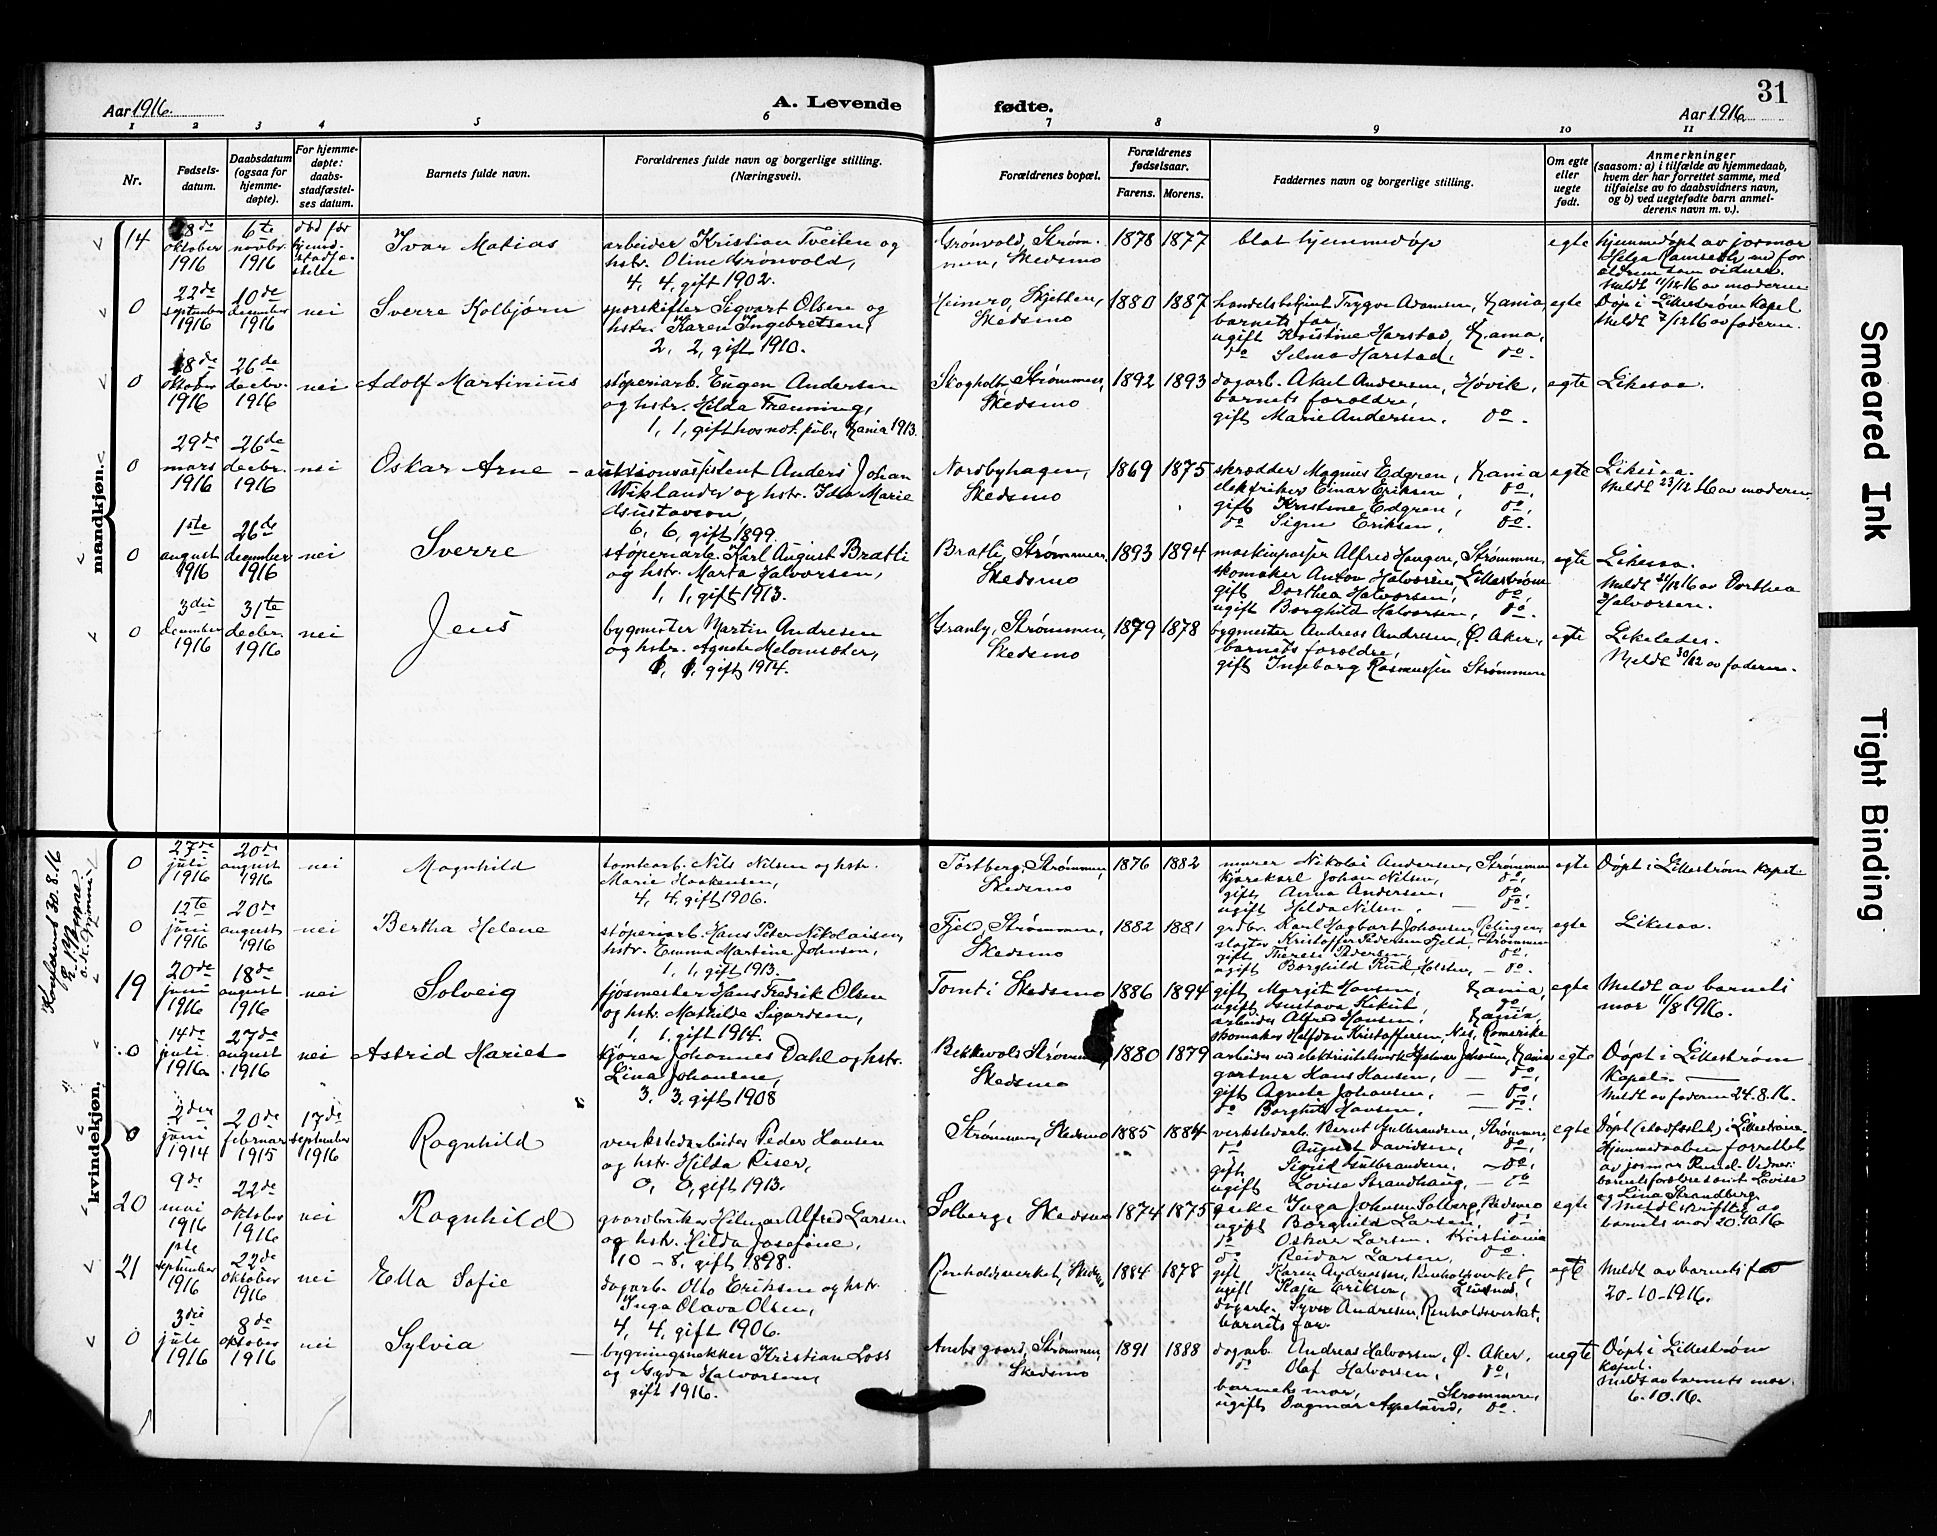 31
Aar 1916.
A. Levende fødte.
Aar 1916
1 2 3 4 5 6 7 8 9 10 11
Nr.
Fødsels-
datum.
Daabsdatum
(ogsaa for
hjemme-
døpte).
For hjemme-
døpte:
daabs-
stadfæstel-
ses datum.
Barnets fulde navn.
Forældrenes fulde navn og borgerlige stilling.
(Næringsvei).
Forældrenes bopæl.
Forældrenes
fødselsaar.
Farens. Morens.
Faddernes navn og borgerlige stilling.
Om egte
eller
uegte
født.
Anmerkninger
(saasom: a) i tilfælde av hjemmedaab,
hvem der har forrettet samme, med
tilføielse av to daabsvidners navn,
og b) ved uegtefødte barn anmel-
derens navn m. v.).
mandkjøn.
14
oktober
1916
6te
novbr.
1916
Ivar Matias
arbeider Kristian Tveiten og
hstr. Oline Grønvold,
4, 4, gift 1902.
Grønvold, Strøm-
men, Skedsmo
1878 1877
egte
0
22de
september
1916
10de
december
1916
nei
Sverre Kolbjørn
sporskifter Sigvart Olsen og
hstr. Karen Ingebretsen,
2, 2, gift 1910.
Skjetten,
Skedsmo
1880 1887
barnets far
ugift Kristine Harstad,
do Selma Harstad, do.
egte
Døpt i Lillestrøm kapel
Meldt 7/12 16 av faderen.
0
oktober
1916
26de
decbr.
1916
nei
Adolf Martinius
støperiarb. Eugen Andersen
og hstr. Hilda Frenning,
1, 1, gift hos not. pub., Kania 1913.
Skogholt, Strømmen,
Skedsmo
1892 1893
dagarb. Aksel Andersen, Høvik,
barnets foreldre,
gift Marie Andersen, do.
egte
Likesaa.
0
29de
mars
1916
26de
decbr.
1916
nei
Oskar Arne
auktionsassistent Anders Johan
Wiklander og hstr. Ida Marie
Gustavson,
6, 6, gift 1899.
Nordbyhagen,
Skedsmo
1869 1875
skrædder Magnus Edgren, Kania
elektriker Einar Eriksen, do,
gift Kristine Edgren, do,
do Signe Eriksen, do.
egte
Likesaa.
Meldt 23/12 16 av moderen
0
1ste
august
1916
26de
december
1916
nei
Sverre
støperiarb. Karl August Bratli
og hstr. Marta Halvorsen,
1, 1, gift 1913.
Bratli, Strømmen
Skedsmo
1893 1894
maskinpasser Alfred Haugen, Strømmen,
skomaker Anton Halvorsen, Lillestrøm
gift Dorthea Halvorsen, do,
ugift Borghild Halvorsen, do.
egte
Likesaa.
av Dorthea
Halvorsen.
0
3die
december
1916
31te
decbr.
1916
nei
Jens
bygmester Martin Andresen
og hstr. Agnete Melomsæter,
gift 1914.
Granly, Strømmen,
Skedsmo
1879 1878
bygmester Andreas Andresen, Ø. Aker,
barnets foreldre,
gift Ingeborg Rasmussen Strømmen
egte
Likeledes.
Meldt 30/12 av faderen.
kvindekjøn.
0
27de
juli
1916
20de
august
1916
nei
Magnhild
tomtearb. Nils Nilsen og hstr.
Marie Haakensen,
4, 4, gift 1906.
Tostberg, Strømmen,
Skedsmo
1876 1882
murer Nikolai Andersen, Strømmen
kjørekarl Johan Nilsen, do,
gift Anna Andersen, do,
ugift Helda Nilsen, — do.
egte
Døpt i Lillestrøm kapel
0
12te
juni
1916
20de
august
1916
nei
Bertha Helene
støperiarb. Hans Peter Nikolaisen,
hstr. Emma Martine Johnsen,
1, 1, gift 1913.
Fjeld, Strømmen,
Skedsmo
1882 1881
grdbr. Karl Hagbart Johansen,
Kristoffer Pedersen Fjeld Strømmen
gift Therese Pedersen, do,
ugift Borghild Rud Holsten, — do.
egte
Likesaa.
19
20de
juni
1916
18de
august
1916
nei
Solveig
fjøsmester Hans Fredrik Olsen
og hstr. Mathilde Sigurdsen,
1, 1, gift 1914.
Tomt i Skedsmo
1886 1894
gift Margit Hansen, Kania,
ugift Gustava Kikut, do
arbeider Alfred Hansen, Kania,
skomaker Halfdan Kristoffersen, Nes, Romerike
egte
Meldt av barnets
mor 11/8 1916.
0
14de
juli
1916
27de
august
1916
nei
Astrid Hariet
kjører Johannes Dahl og hstr.
Lina Johansen,
3, 3, gift 1908
Bekkevold, Strømmen
Skedsmo
1880 1879
gartner Hans Hansen, — do,
gift Agnete Johansen, — do,
do Borghild Hansen, — do.
egte
Døpt i Lillestrøm
kapel.
Meldt av faderen 24.8.16.
0
2den
juni
1914
20de
februar
1915
17de
september
1916
Ragnhild
verkstedarbeider Peder Hansen
og hstr. Hilda Riser,
0, 0, gift 1913.
Strømmen, Skedsmo
1885 1884
verkstedarb. Bernt Gulbrandsen, Strømmen,
do August Davidsen, do,
gift Sigrid Gulbrandsen, — do,
ugift Lovise Strandhaug, — do
egte
Døpt (stadfæstet) i Lillestrøm.
Hjemmedaaben forrettet
av jormor
20
9de
mai
1916
22de
oktober
1916
nei
Ragnhild
gaardbruker Hilmar Alfred Larsen
og hstr. Hilda Josefine,
10 – 8, gift 1898.
Solberg, Skedsmo
1874 1875
enke Inga Johansen Solberg, Skedsmo
ugift Borghild Larsen, do
do Oskar Larsen, Kristiania
do Reidar Larsen, do.
egte
barnets mor 20.10.16
21
1ste
september
1916
22de
oktober
1916
nei
Ella Sofie
dagarb. Otto Eriksen og hstr.
Inga Olava Olsen,
4, 4, gift 1906.
Renholdsverket, Skedsmo
1884 1878
gift Karen Andreassen, Renholdsverket,
ugift Kaja Eriksen,
dagarb. Syver Andresen, Renholdsverket,
barnets far.
egte
Meldt av barnets far
20-10-1916.
0
3die
juli
1916
8de
oktober
1916
nei
Sylvia
bygningssnekker Kristian Loss
og Gyda Halvorsen,
gift 1916.
Strømmen,
Skedsmo
1891 1888
dagarb. Andreas Halvorsen, Ø. Aker,
do Olaf Halvorsen, do,
barnets mor, Strømmen,
ugift Dagmar do.
uegte
Døpt i Lillestrøm
kapel.
Meldt av barnets mor
6.10.16.
Smeared Ink
Tight Binding